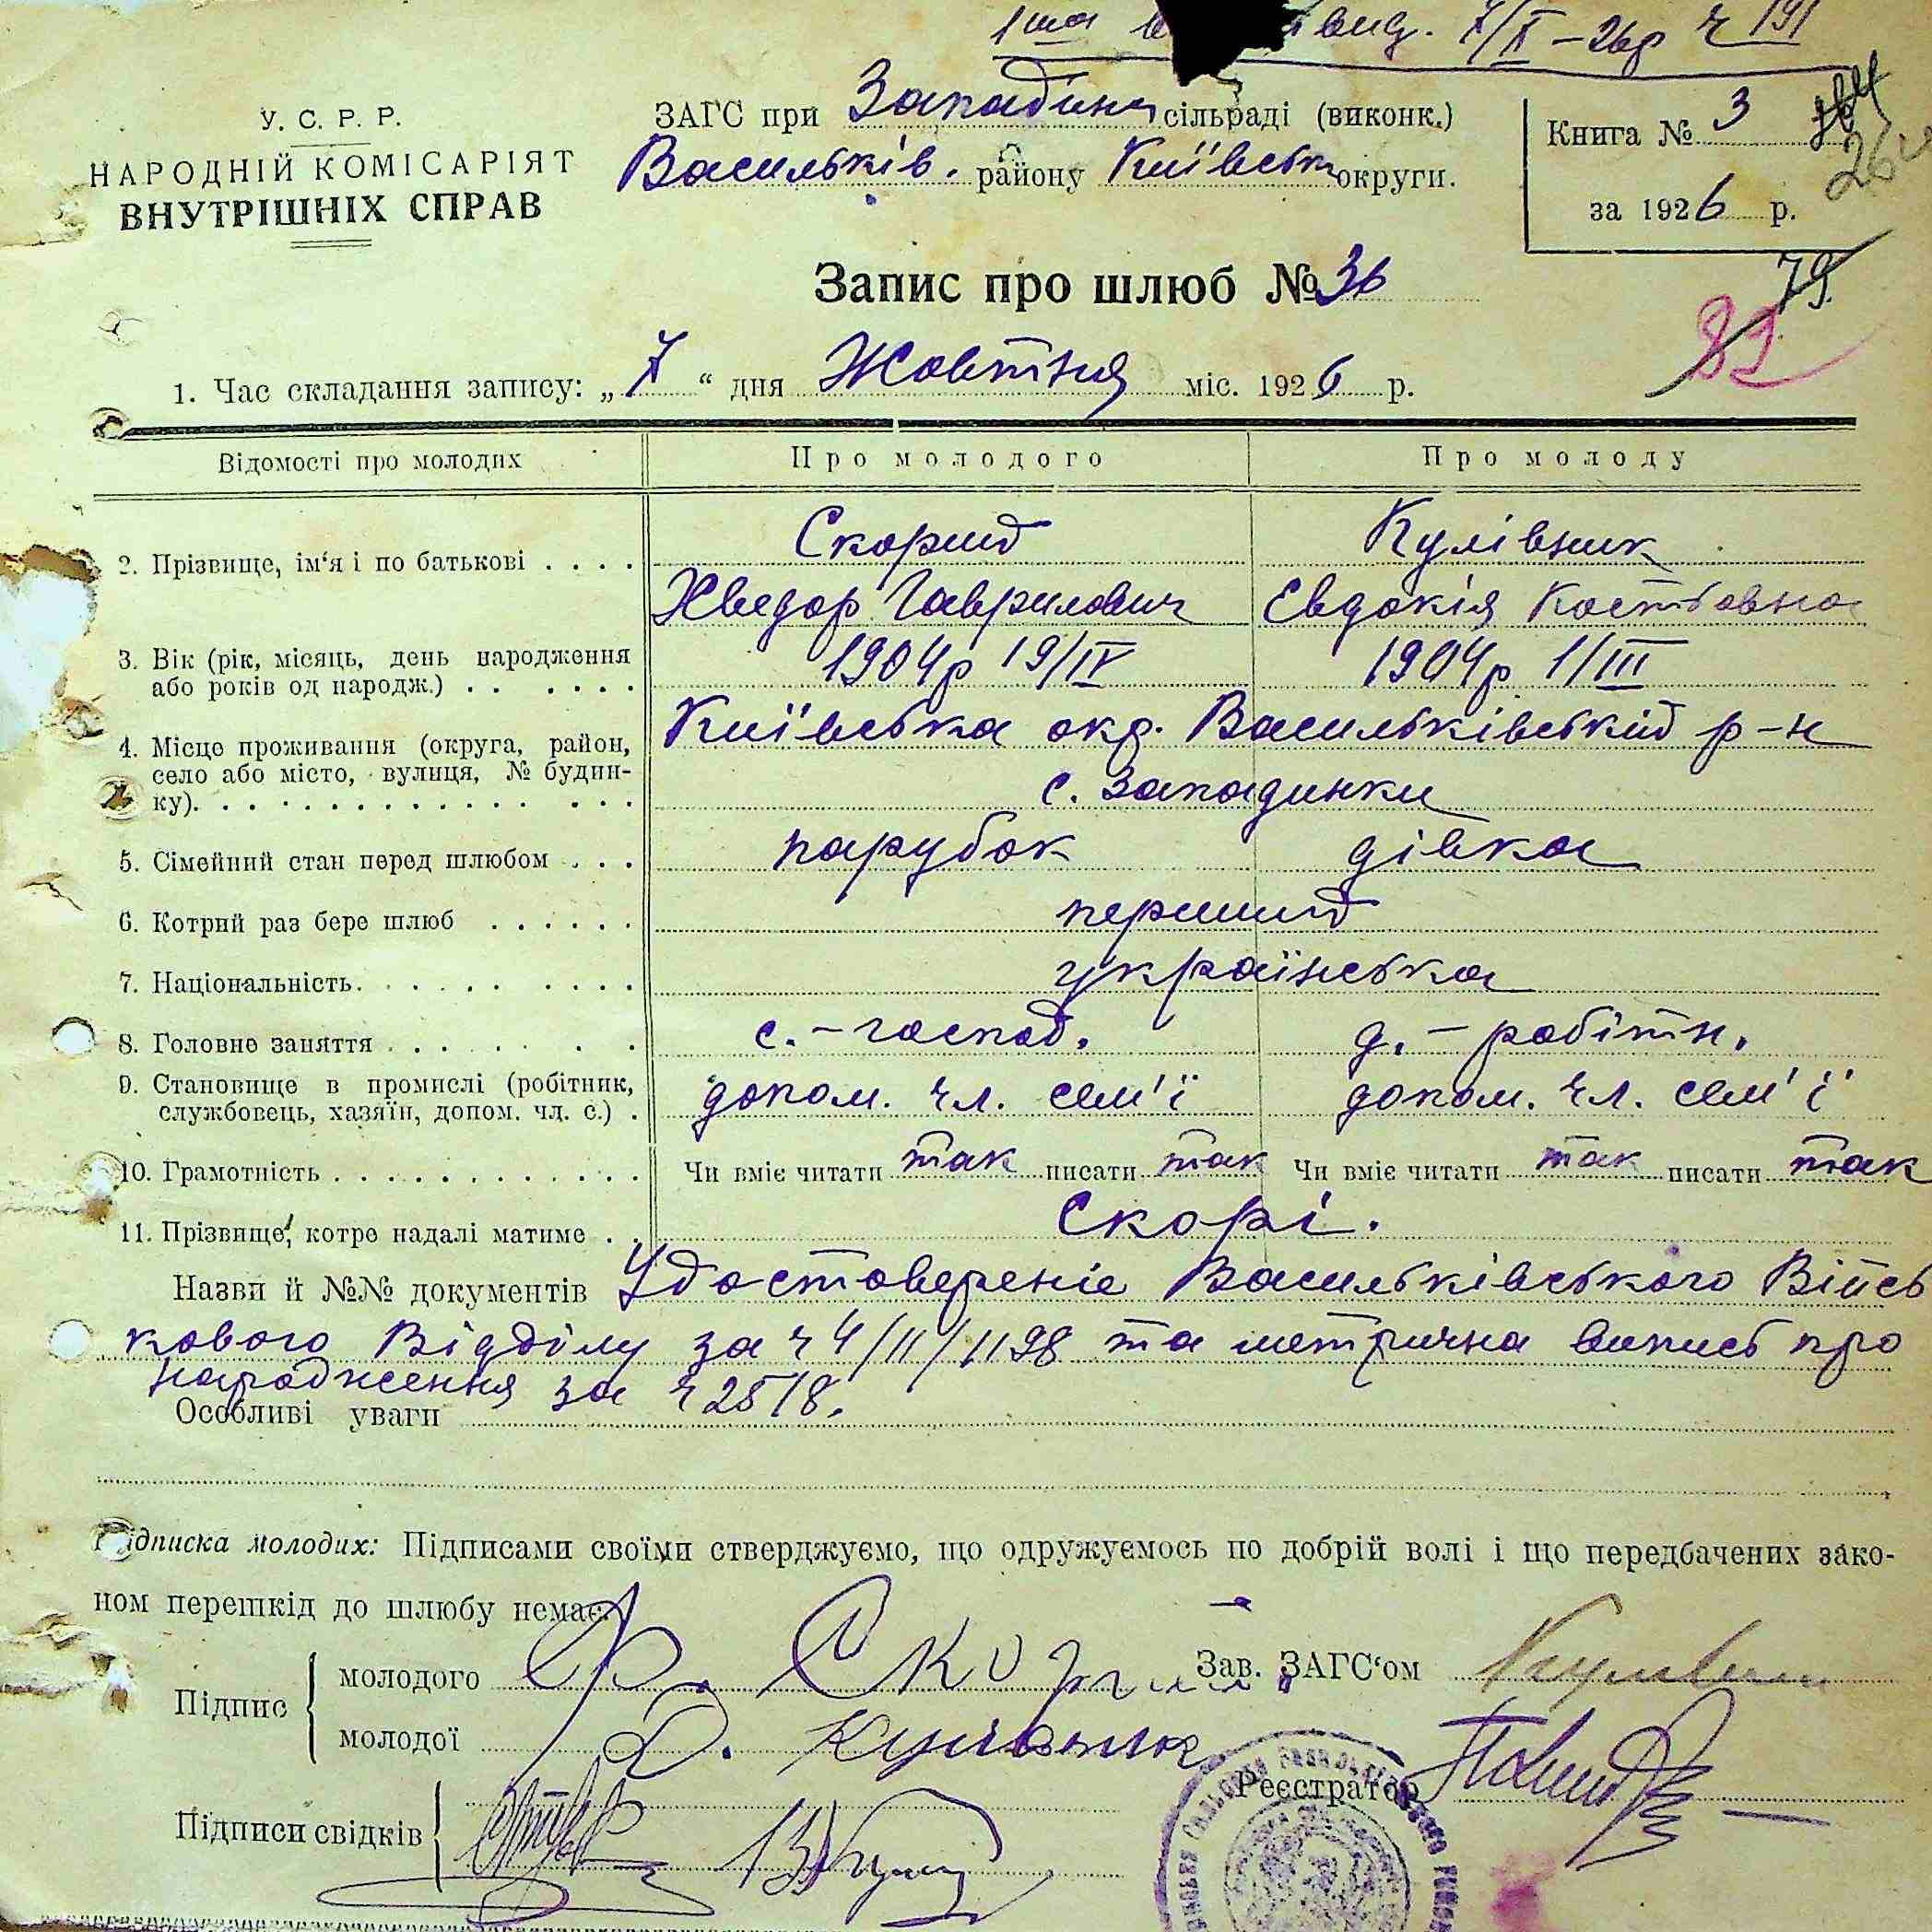 вид. 7/X – 26р ч 191
У. С. Р. Р.
НАРОДНІЙ КОМІСАРІЯТ
ВНУТРІШНІХ СПРАВ
ЗАГС при Западин сільраді (виконк.)
Васильків. району Київськ округи.
Книга № 3
за 1926 р.
79
Запис про шлюб № 36
1. Час складання запису: „7“ дня Жовтня міс. 1926 р.
Відомості про молодих Про молодого Про молоду
2. Прізвище, ім'я і по батькові . . . . Скорий Кулівник
Хведор Гаврилович Евдокія Костовна
3. Вік (рік, місяць, день народження 1904р 19/IV 1904р 1/III
або років од народж.) . . . . . .
4. Місце проживання (округа, район, Київська окр. Васильківський р-н
село або місто, вулиця, № будин-
ку). . . . . . . . . . . . . . . с. Западинки
5. Сімейний стан перед шлюбом . . . парубок дівка
6. Котрий раз бере шлюб . . . . . . перший
7. Національність. . . . . . . . . . українська
8. Головне заняття . . . . . . . с.-господ. д.-робітн.
9. Становище в промислі (робітник, допом. чл. сем'ї допом. чл. сем'ї
службовець, хазяїн, допом. чл. с.) .
10. Грамотність . . . . . . . . . . . . Чи вміє читати так писати так Чи вміє читати так писати так
11. Прізвище, котре надалі матиме . . Скорі.
Назви й №№ документів Удостовереніе Васильківського Війсь
кового Відділу за ч 4/11/1198 та метрична випись про
народження за ч 2518.
Особливі уваги
Підписка молодих: Підписами своїми стверджуємо, що одружуємось по добрій волі і що передбачених зако-
ном перешкід до шлюбу немає.
Підпис
молодого Ф. Скорий Зав. ЗАГС'ом
молодої
Реєстратор
Підписи свідків